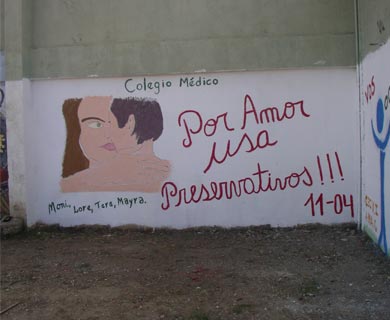 Colegio Médico
Por Amor
usa
Preservativos!!!
11-04
Moni, Lore, Tere, Mayra.
VOS